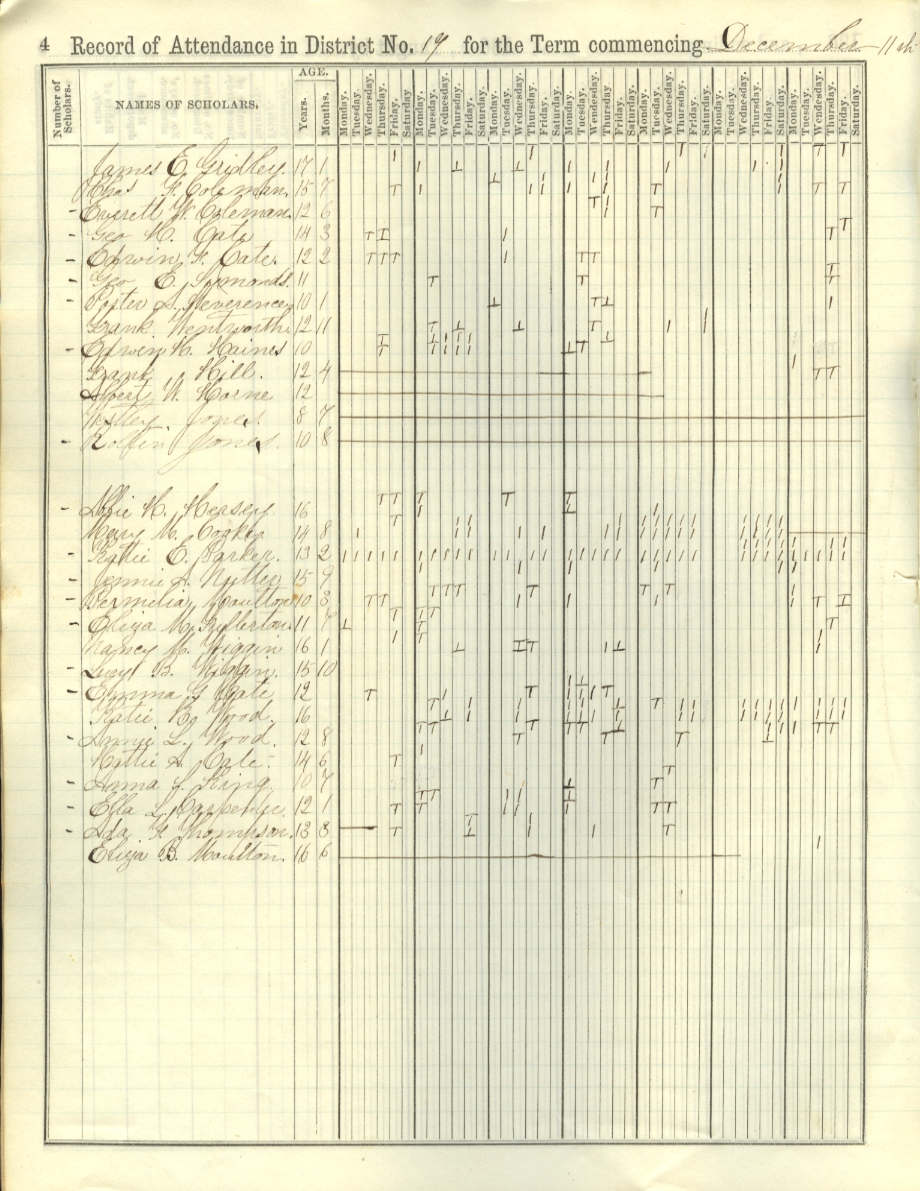 4 Record of Attendance in District No. 19 for the Term commencing December 11th
Number of Scholars. NAMES OF SCHOLARS. AGE. Years. Months. Monday. Tuesday. Wednesday. Thursday. Friday. Saturday Monday. Tuesday. Wednesday. Thursday. Friday. Saturday. Monday. Tuesday. Wednesday. Thursday. Friday. Saturday. Monday. Tuesday. Wednesday. Thursday. Friday. Saturday. Monday. Tuesday. Wednesday. Thursday. Friday. Saturday. Monday. Tuesday. Wednesday. Thursday. Friday Saturday. Monday. Tuesday. Wednesday. Thursday. Friday. Saturday.
James E. Gridley 17 1
Chas F. Coleman. 15 7
- Everett W. Coleman. 12 6
- Geo H. Cate 14 3
- Edwin F. Cate. 12 2
- Geo E. Symonds. 11
- Porter 10 1
- Frank Wentworth. 12 11
- Edwin H. Haines 10
Frank Hill. 12 4
Albert W. Horne 12
Jones. 8 7
- Jones. 10 8
- Abbie H. Hersey. 16
Mary M. 14 8
- Kattie E. Parker. 13 2
Jennie A. Nutter 15 9
- Permelia Moulton 10 3
- Eliza M. Fullerton. 11
Nancy M. Wiggin 16 1
Lucy B. Wiggin. 15 10
- Emma G. Cate 12
Katie B. Wood. 16
- Annie L. Wood. 12 8
Hattie A. Cate. 14 6
- Anna King. 10 7
- Ella L. Carpenter. 12 1
- Ada F. Thompson. 13 8
Eliza B. Moulton. 16 6